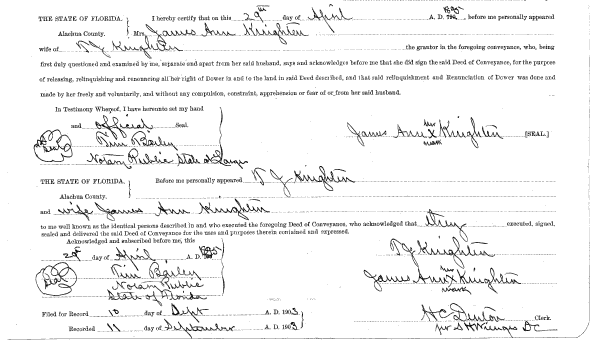 THE STATE OF FLORIDA. I hereby certify that on this 29th day of April A. D. 1895, before me personally appeared
Alachua County. Mrs. James Ann Knighten
wife of T J Knighten the grantor in the foregoing conveyance, who, being
first duly questioned and examined by me, separate and apart from her said husband, says and acknowledges before me that she did sign the said Deed of Conveyance, for the purpose
of releasing, relinquishing and renouncing all her right of Dower in and to the land in said Deed described, and that said relinquishment and Renunciation of Dower was done and
made by her freely and voluntarily, and without any compulsion, constraint, apprehension or fear of or from her said husband.
In Testimony Whereof, I have hereunto set my hand
and official Seal.
her
James Ann X Knighten [SEAL.]
mark
Seal
Tim Bailey
Notary Public State at Large
THE STATE OF FLORIDA. Before me personally appeared T J Knighten
Alachua County.
and wife James Ann Knighten
to me well known as the identical persons described in and who executed the foregoing Deed of Conveyance, who acknowledged that they executed, signed,
sealed and delivered the said Deed of Conveyance for the uses and purposes therein contained and expressed.
Acknowledged and subscribed before me, this
29th day of April A. D. 1895
T J Knighten
Seal
Tim Bailey
Notary Public
State of Florida
her
James Ann X Knighten
mark
Filed for Record 10 day of Sept A. D. 1903
H C Denton Clerk.
Recorded 11 day of September A. D. 1903
per S H Wienges DC